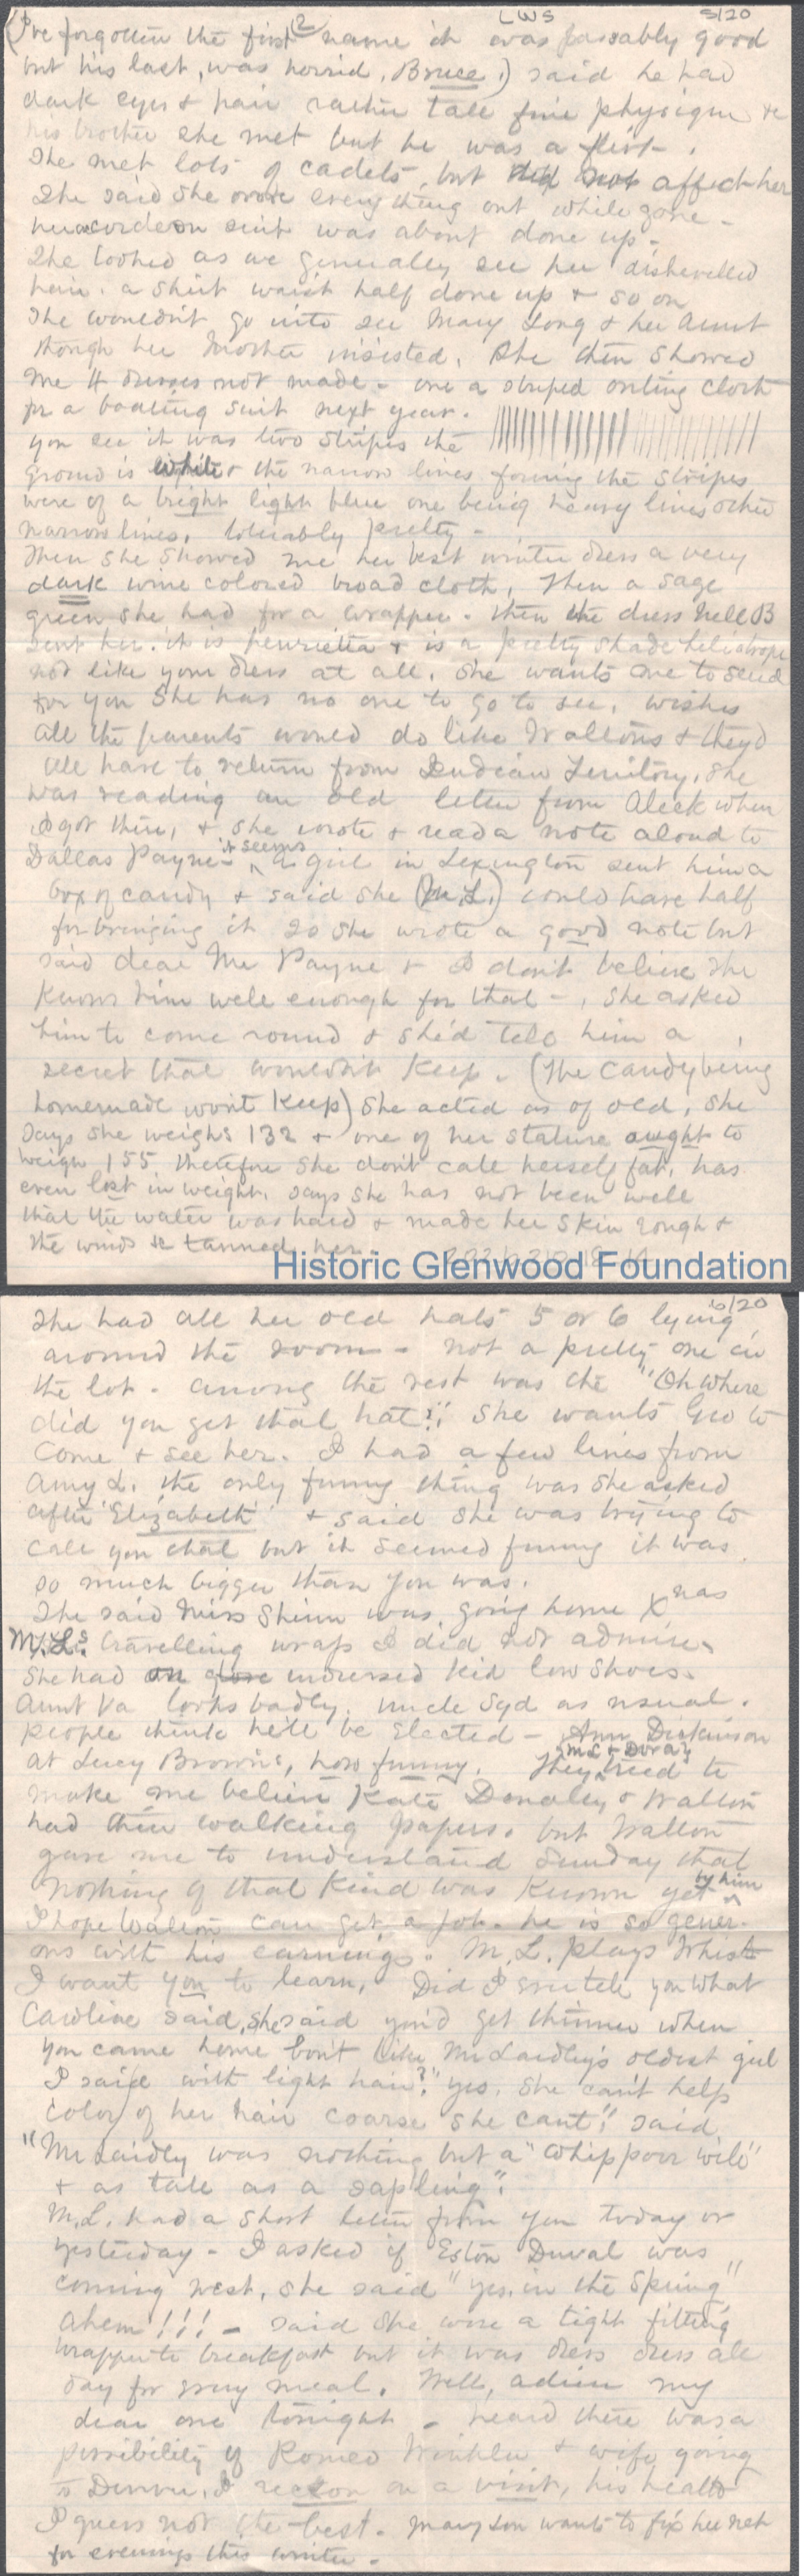 LWS 5/20
(I've forgotten the first 2 name it was passably good
but his last, was horrid, Bruce,) said he had
dark eyes & hair rather tall fine physique &c
his brother she met but he was a flirt.
She met lots of cadets, but did not affect her
She said she wore everything out while gone -
her accordeon suit was about done up -
She looked as we generally see her dishevelled
hair. a shirt waist half done up & so on
She wouldn't go into see Mary Long & her Aunt
though her Mother insisted. She then showed
me 4 dresses not made - one a striped outing cloth
for a boating suit next year.
you see it was two stripes the
ground is white & the narrow lines forming the stripes
were of a bright light blue one being heavy lines other
narrow lines. tolerably pretty -
Then she showed me her best winter dress a very
dark wine colored broad cloth, Then a sage
green she had for a wrapper - then the dress Nell B
sent her. it is henrietta & is a pretty shade heliotrope
not like your dress at all. She wants me to send
for you She has no one to go to see, wishes
all the parents would do like Waltons & they'd
all have to return from Indian Territory. She
was reading an old letter from Aleck when
I got there, & she wrote & read a note aloud to
Dallas Payne - it seems a girl in Lexington sent him a
box of candy & said she (M.L.) could have half
for bringing it so she wrote a good note but
said dear Mr Payne & I don't believe she
knows him well enough for that - , she asked
him to come round & she'd tell him a
secret that wouldn't keep. (The candy being
homemade won't keep) She acted as of old, she
says she weighs 132 & one of her stature ought to
weigh 155 therefore she don't call herself fat, has
even lost in weight. says she has not been well
that the water was hard & made her skin rough &
the winds &c tanned her.
Historic Glenwood Foundation
6/20
She had all her old hats 5 or 6 lying
around the room - not a pretty one in
the lot - among the rest was the "Oh Where
did you get that hat?" She wants Geo to
come & see her. I had a few lines from
Amy L. the only funny thing was she asked
after 'Elizabeth' & said she was trying to
call you that but it seemed funny it was
so much bigger than you was.
She said Miss Shinn was going home X mas
M.L's. travelling wrap I did not admire.
She had on undressed kid low shoes.
Aunt Va looks badly. Uncle Syd as usual.
people think he'll be elected - Ann Dickinson
at Lucy Browns, how funny. They M L & Dora tried to
make me believe Kate Donaley & Walton
had their walking papers, but Walton
gave me to understand Sunday that
nothing of that kind was known yet by him
I hope Walton can get a job. he is so gener-
ous with his earnings. M.L. plays Whist
I want you to learn, Did I ever tell you what
Caroline said, she said you'd get thinner when
you came home but like Mr Laidley's oldest girl
I said with light hair?" "yes, she can't help
color of her hair coarse she can't," said
"Mr Laidly was nothing but a "whippoor will"
& as tall as a sapling".
M.L. had a short letter from you today or
yesterday - I asked if Eston Duval was
coming west, she said "yes, in the Spring"
Ahem!!! - said she wore a tight fitting
wrapper to breakfast but it was dress dress all
day for every meal. Well, adieu my
dear one tonight - heard there was a
possibility of Romeo & wife going
to Denver, I reckon on a visit, his health
I guess not the best. Mary Lou wants to fix her net
for evenings this winter -